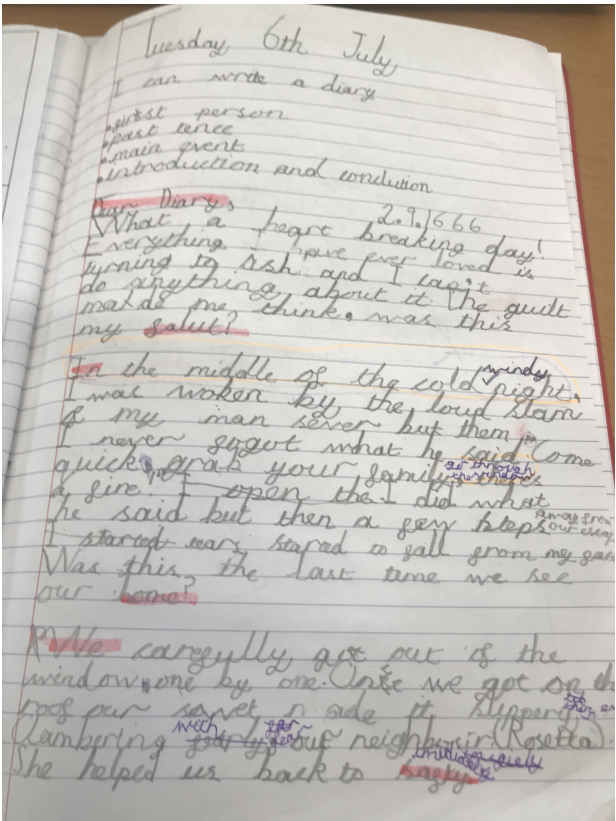 Tuesday 6th July
I can write a diary
.first person
.past tence
.main event
.introduction and conclution
Dear Diary, 2.9.1666
What a heart breaking day!
Everything I have ever loved is
turning to ash and I can't
do anything about it. The guilt
makde me think. was this
my falut?
In the middle of the cold windy night,
I was woken by the loud slam
of my man sever but them
I never fogot what he said Come
quick, grab your family
go through the window
a fire! I open the I did what
he said but then a few steps away from our
I started tears stared to fall from my face
Was this the last time we see
our home?
We carefully got out of the
window, one by one. Once we got on the
roof our
clambering with our neighbour (Rosetta).
She helped us back to safty